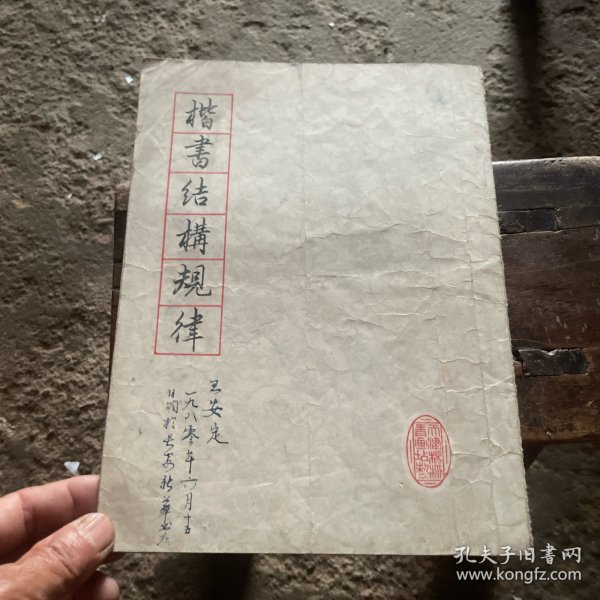 楷書结構規律
王安定
一九八零年六月十五
日购於長安新華书
孔夫子旧书网
www.kongfz.com